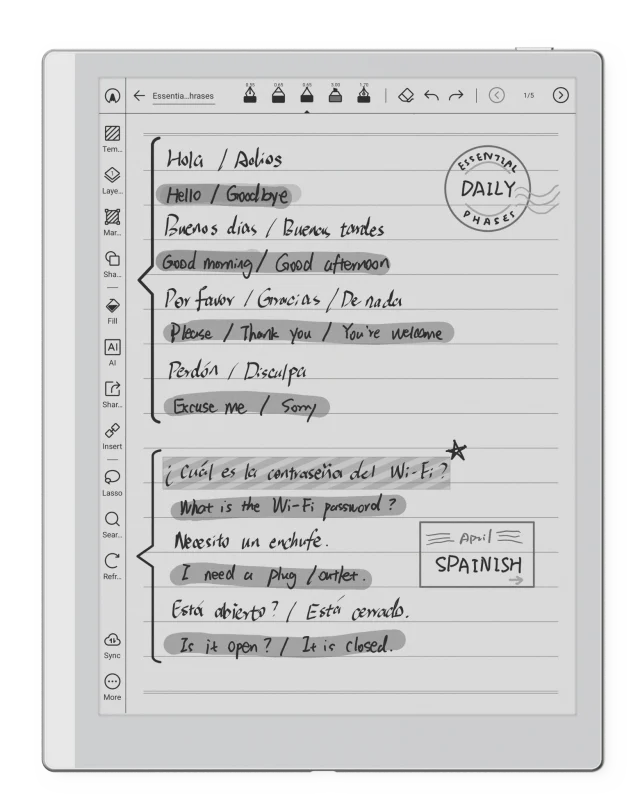 Essentia...hrases
0.35
0.65
0.65
5.00
1.20
1/5
Tem...
Laye...
Mar...
Sha...
Fill
AI
AI
Shar...
Insert
Lasso
Sear...
Refr...
Sync
More
Hola / Adios
Hello / Goodbye
Buenos días / Buenas tardes
Good morning / Good afternoon
Por favor / Gracias / De nada
Please / Thank you / You're welcome
Perdón / Disculpa
Excuse me / Sorry
ESSENTIAL
DAILY
PHASES
¿Cuál es la contraseña del Wi-Fi?
What is the Wi-Fi password?
Necesito un enchufe.
I need a plug / outlet.
Está abierto? / Está cerrado.
Is it open? / It is closed.
April
SPAINISH